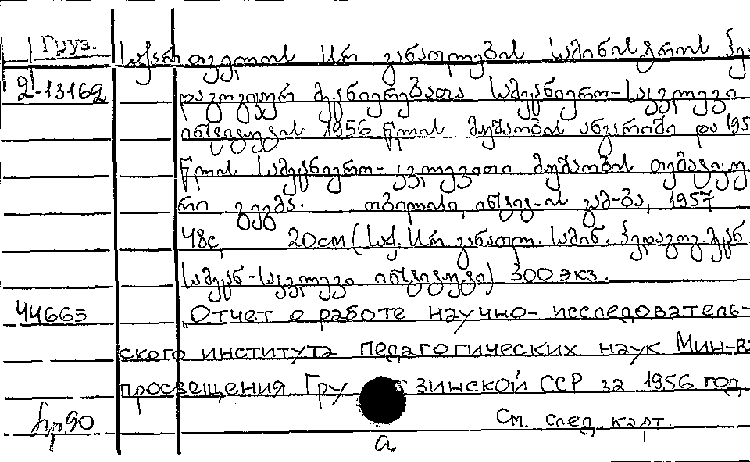 Груз.
საქართველოს სსრ განათლების სამინისტროს პე-
2-13162
დაგოგიურ მეცნიერებათა სამეცნიერო-საკვლევი
ინსტიტუტის 1956 წლის მუშაობის ანგარიში და 195
წლის სამეცნიერო-კვლევითი მუშაობის თემატიუ
რი გეგმა. თბილისი, ინსტ-ის გამ-ბა, 1957
48с, 20см (საქ. სსრ განათლ. სამინ. პედაგოგ. მეცნ.
სამეცნ-საკვლევი ინსტიტუტი) 300 экз.
44665
Отчет о работе научно-исследователь-
ского института педагогических наук Мин-ва
просвещения Грузинской ССР за 1956 год
бр90
См. след. карт.
а.